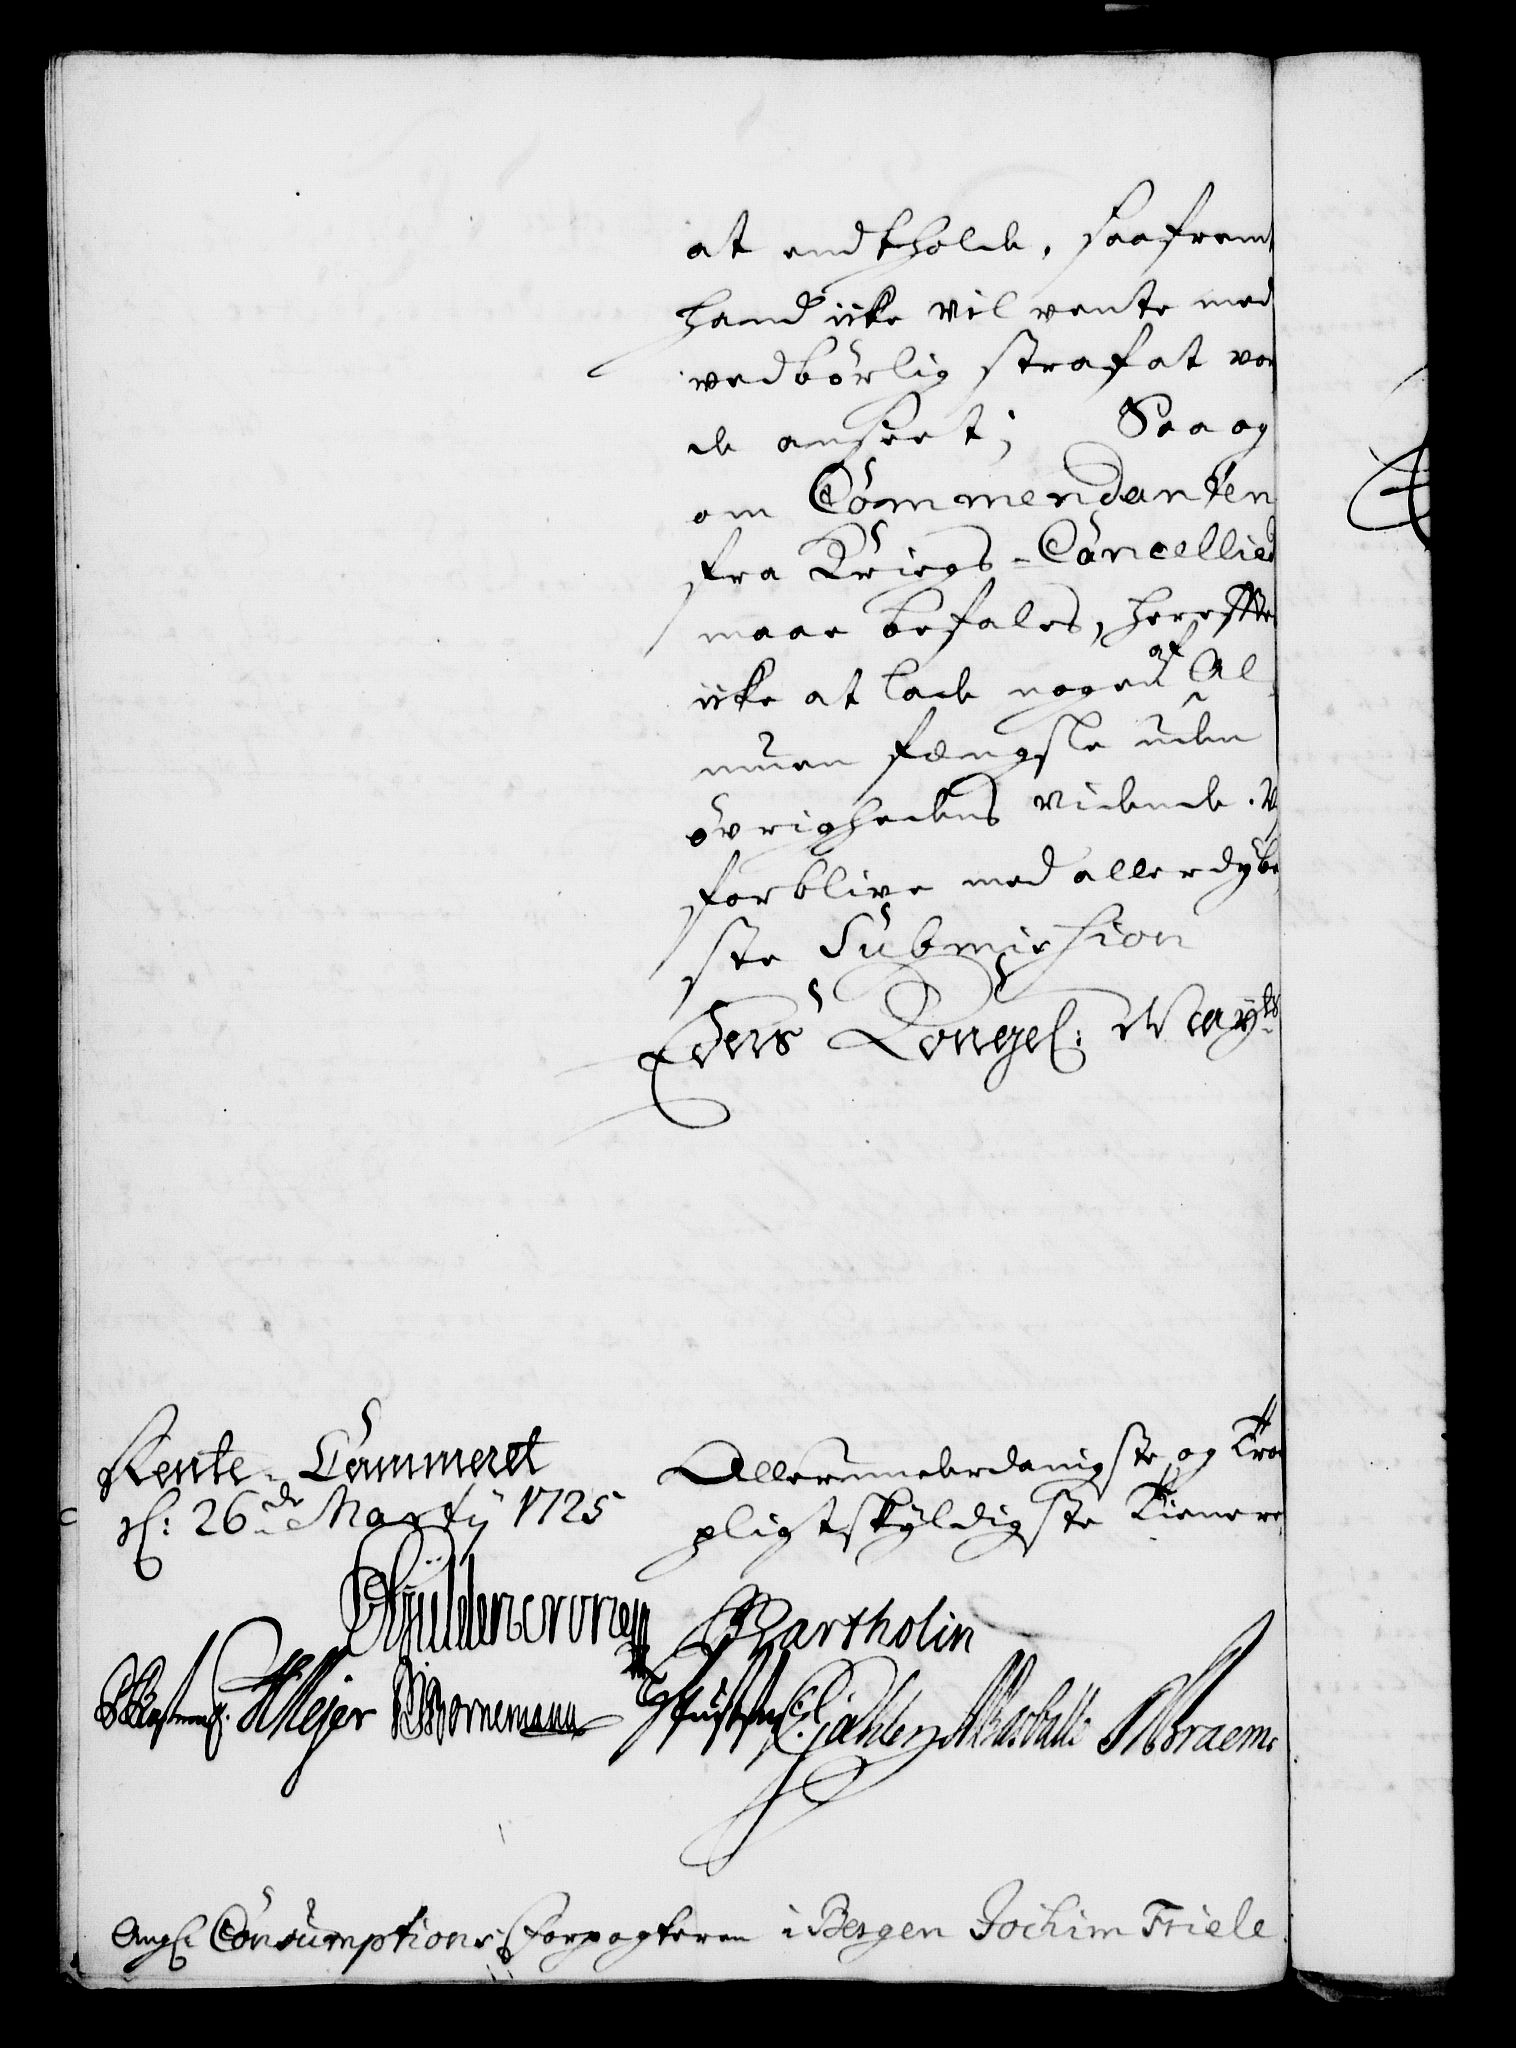 at endtholde, saafremt
hand icke vil vente med
vedbörlig straf at vor
de anseet; Saa og
om Commendanten
fra Kriegs-Cancellied
maae befales, herefter
icke at lade nogen af Al
muen fængsle uden
övrighedens vidende. V
forblive med allerdybe
ste Submission
Eders Kongel: Mayts
Rente-Cammeret
d: 26de Martij 1725
Allerunderdanigste og Troe
pligtskyldigste Tienere
Güldencrone
Bartholin
HMeÿer Bornemann
Braem
Angl: Consumptions Forpagteren i Bergen Jochim Friele